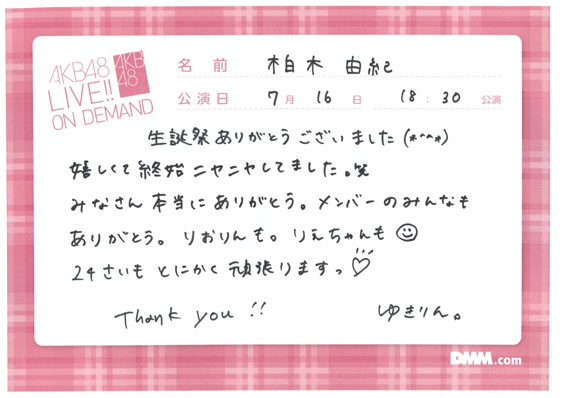 AKB48
LIVE!!
ON DEMAND
AKB
48
名前 柏木 由紀
公演日 7月 16日 18:30 公演
生誕祭ありがとうございました(*^^*)
嬉しくて終始ニヤニヤしてました。笑
みなさん本当にありがとう。メンバーのみんなも
ありがとう。りおりんも。りえちゃんも
24さいもとにかく頑張りますっ♡
Thank you!!
ゆきりん。
DMM.com